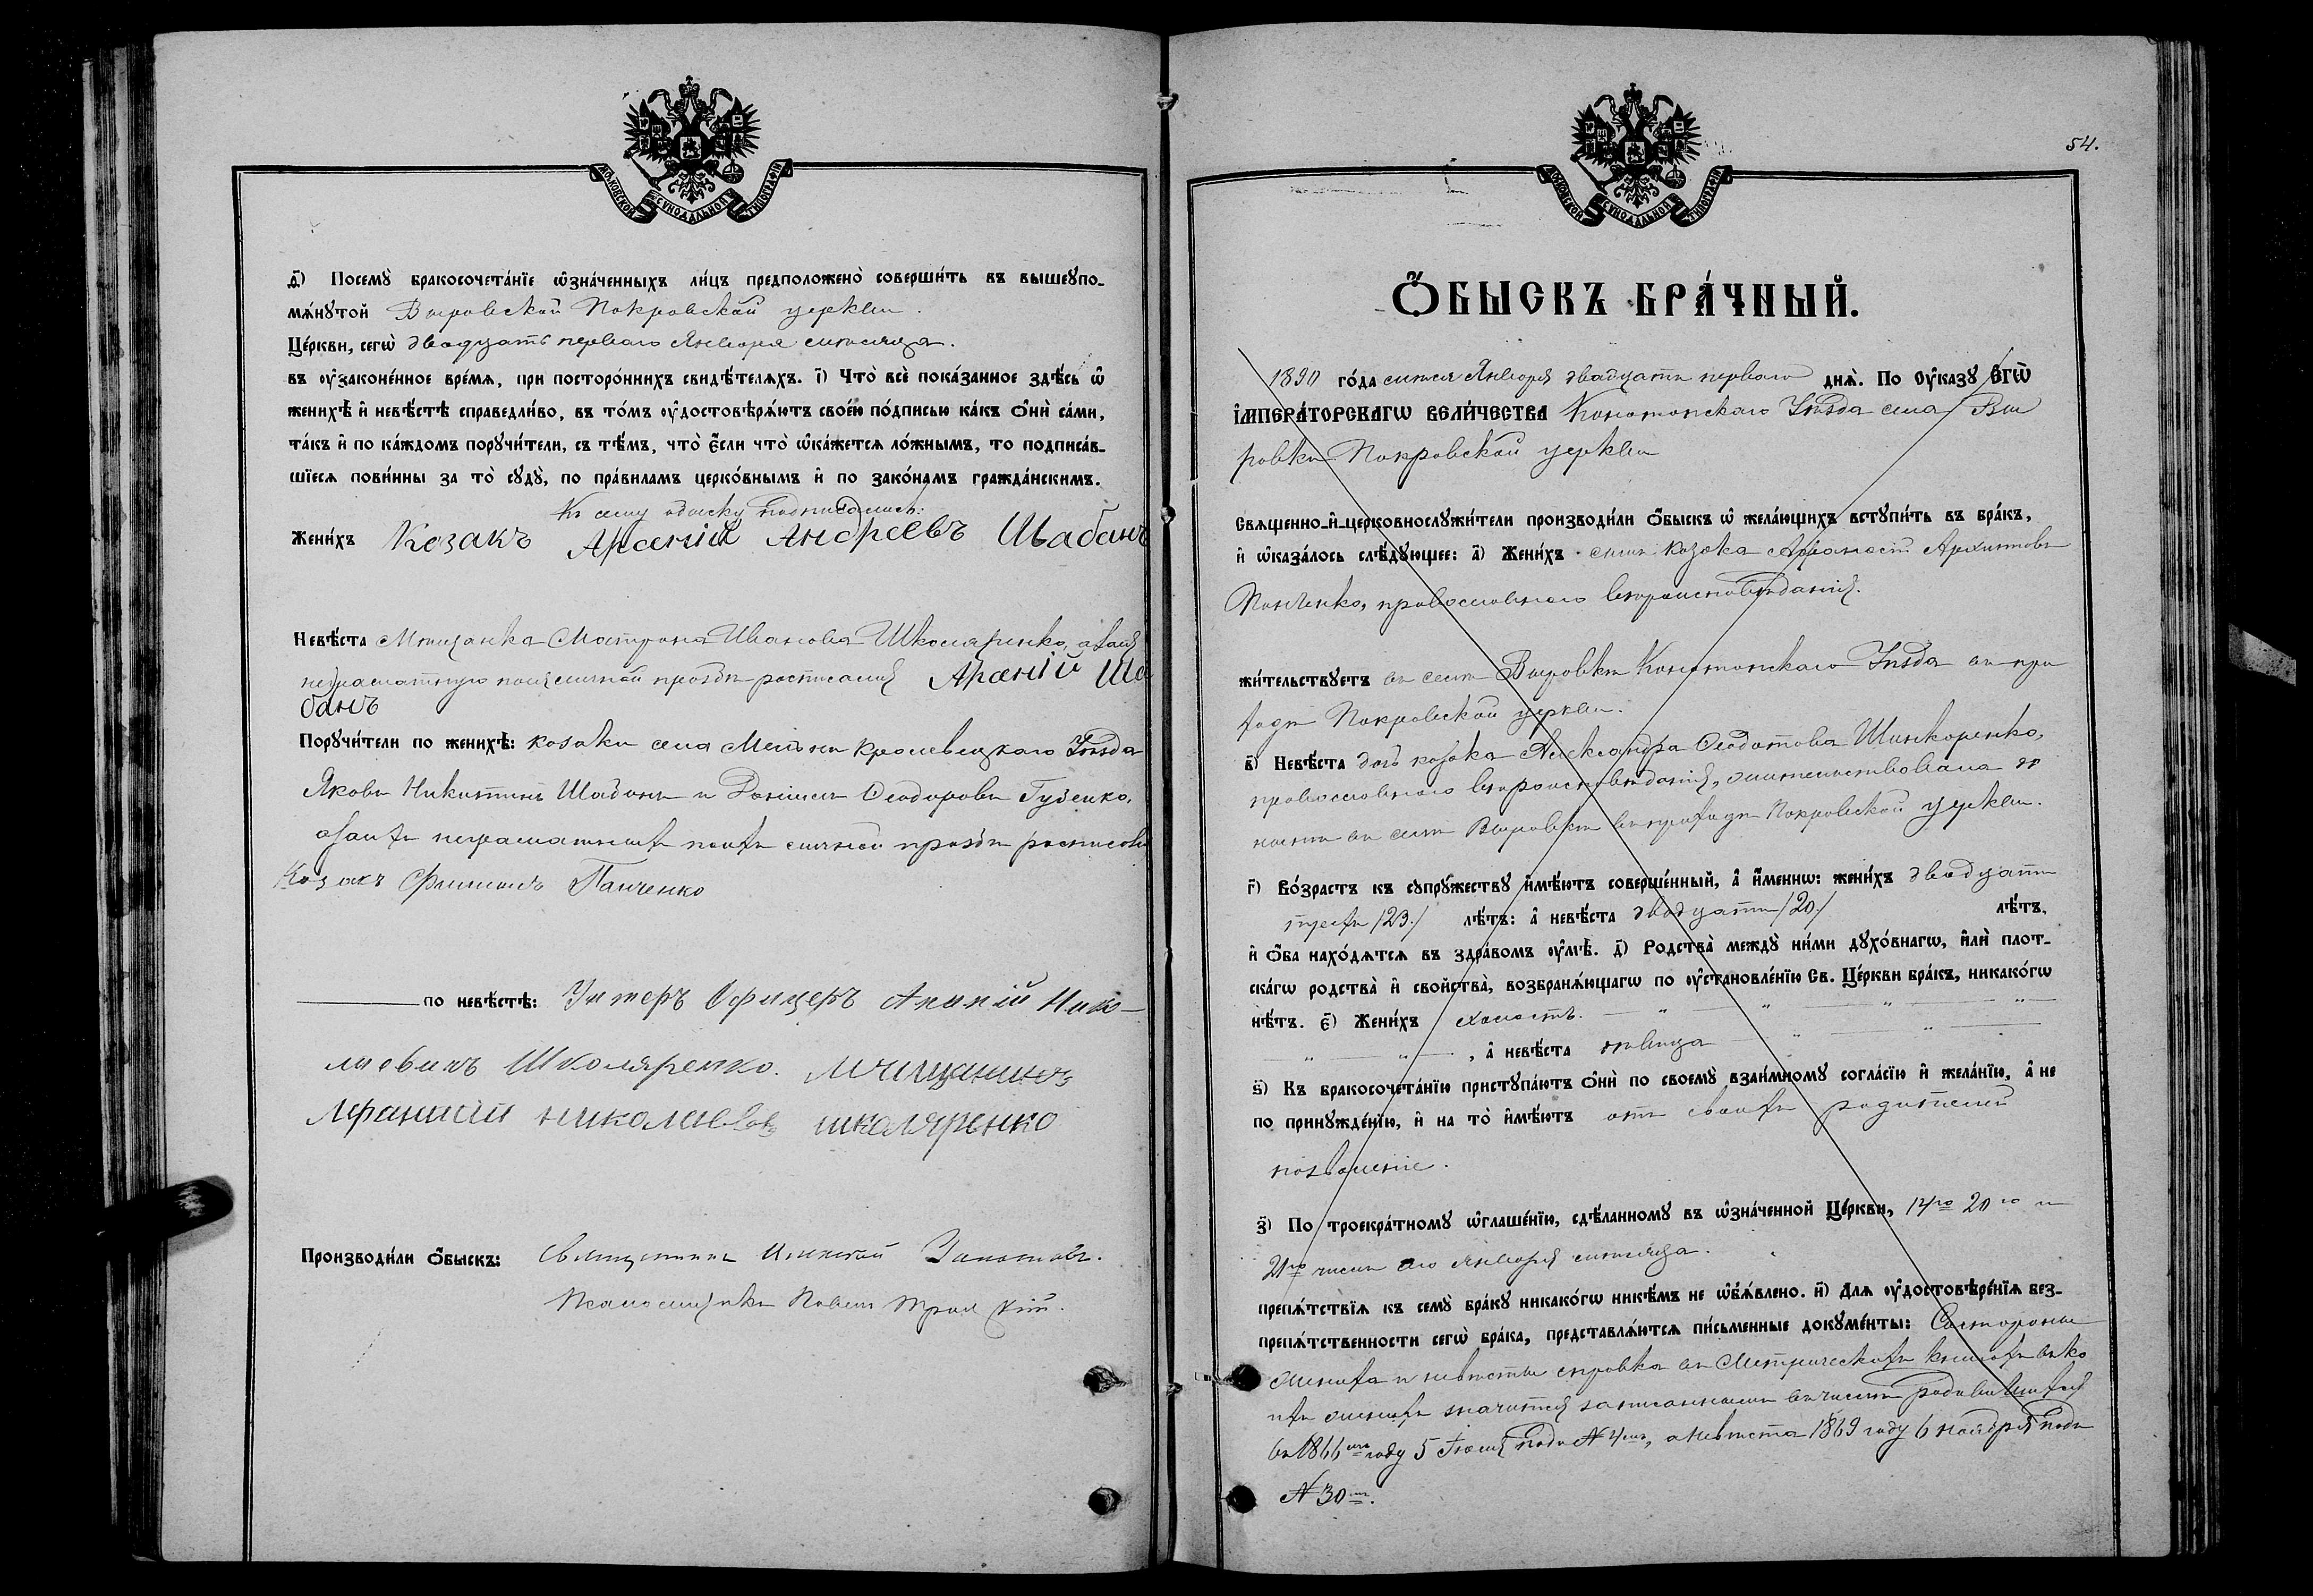 МОСКОВСКОЙ СѴНОДАЛЬНОЙ ТИПОГРАФІИ
д҃) Посемꙋ̀ бракосочета́нїе ѡ҆зна́ченныхъ ли́цъ предположено̀ соверши́ть въ вышеꙋпо-
мѧ́нꙋтой Выровской Покровской церкви.
Це́ркви, сегѡ̀ двадцать перваго Января мѣсяца.
въ ᲂу҆законе́нное вре́мѧ, при посторо́ннихъ свидѣ́телѧхъ. і҃) Что̀ всѐ пока́занное здѣ́сь ѡ҆
женихѣ̀ и҆ невѣ́стѣ справедли́во, въ то́мъ ᲂу҆достовѣрѧ́ютъ свое́ю по́дписью ка́къ ѻ҆нѝ са́ми,
та́къ и҆ по ка́ждомъ порꙋчи́тели, съ тѣ́мъ, что̀ є҆́сли что̀ ѡ҆ка́жетсѧ ло́жнымъ, то подписа́в-
шїесѧ пови́нны за то̀ сꙋдꙋ̀, по пра́виламъ церко́внымъ и҆ по зако́намъ гражда́нскимъ.
Къ сему обыску подписались:
Жени́хъ Козакъ Арсеній Андреевъ Шабанъ
Невѣ́ста Мѣщанка Матрона Иванова Школяренко, а за нея
неграмотную по ея личной прозьбѣ росписался Арсеній Ша
банъ
Порꙋчи́тели по женихѣ̀: козаки села Кролевецкаго Уѣзда
Яковъ Никитинъ Шабанъ и Даніилъ Ѳеодоровъ Гузенко,
а за ихъ неграмотныхъ по ихъ личной прозьбѣ росписовъ
Козакъ Филипъ Панченко
по невѣ́стѣ: Унтеръ Офицеръ Ананій Нико-
лаевичъ Школяренко. Мѣщанинъ
Афанасій николаевъ школяренко
Производи́ли ѻ҆́быскъ: Священникъ
Псаломщикъ Павелъ
54.
МОСКОВСКОЙ СѴНОДАЛЬНОЙ ТИПОГРАФІИ
Ѻ҆́БЫСКЪ БРА́ЧНЫЙ.
1890 го́да мѣсяца Января двадцать перваго днѧ̀. По Оу҆ка́зꙋ Є҆ГѠ̀
І҆МПЕРА́ТОРСКАГѠ ВЕЛИ́ЧЕСТВА Конотопскаго Уѣзда села Вы
ровки Покровской церкви
Свѧще́нно-и҆-церковнослꙋжи́тели производи́ли ѻ҆́быскъ ѡ҆ жела́ющихъ встꙋпи́ть въ бра́къ,
и҆ ѡ҆каза́лось слѣ́дꙋющее: а҃) Жени́хъ сынъ козака Афанасій Архиповъ
Панченко, православнаго вѣроисповѣданія.
жи́тельствꙋетъ въ селѣ Выровкѣ Конотопскаго Уѣзда въ при
ходѣ Покровской церкви.
в҃) Невѣ́ста дочь козака Александра Ѳеодотова Шинкоренко,
православнаго вѣроисповѣданія, жительствовала до
нынѣ въ селѣ Выровкѣ въ приходѣ Покровской церкви.
г҃) Во́зрастъ къ сꙋпрꙋ́жествꙋ и҆мѣ́ютъ соверше́нный, а҆ и҆́меннѡ: жени́хъ двадцати
трехъ /23./ лѣ́тъ: а҆ невѣ́ста двадцати /20./ лѣ́тъ,
и҆ ѻ҆́ба нахо́дѧтсѧ въ здра́вомъ ᲂу҆мѣ̀. д҃) Родства̀ междꙋ̀ ни́ми дꙋхо́внагѡ, и҆лѝ плот-
ска́гѡ родства̀ и҆ сво́йства̀, возбранѧ́ющагѡ по ᲂу҆становле́нїю Св. Це́ркви бра́къ, никако́гѡ
нѣ́тъ. є҃) Жени́хъ холостъ.
, а҆ невѣ́ста дѣвица
ѕ҃) Къ бракосочета́нїю пристꙋпа́ютъ ѻ҆нѝ по своемꙋ̀ взаи́мномꙋ согла́сїю и҆ жела́нїю, а҆ не
по принꙋжде́нїю, и҆ на то̀ и҆мѣ́ютъ отъ своихъ родителей
позволеніе.
з҃) По троекра́тномꙋ ѡ҆глаше́нїю, сдѣ́ланномꙋ въ ѡ҆зна́ченной Це́ркви, 14го 20го и
21го чиселъ сего Января мѣсяца.
препѧ́тствїѧ къ семꙋ̀ бра́кꙋ никако́гѡ никѣ́мъ не ѡ҆б̾ѧ́влено. и҃) Длѧ ᲂу҆достовѣре́нїѧ без-
препѧ́тственности сегѡ̀ бра́ка, представлѧ́ютсѧ пи́сьменные докꙋме́нты: Со стороны
жениха и невѣсты справка въ Метрическихъ книгахъ въ ко
ихъ женихъ значится записаннымъ въ числѣ родившихся
въ 1866мъ году 5 Іюля подъ №4мъ, а невѣста 1869 году 6 ноября подъ
№ 30мъ.